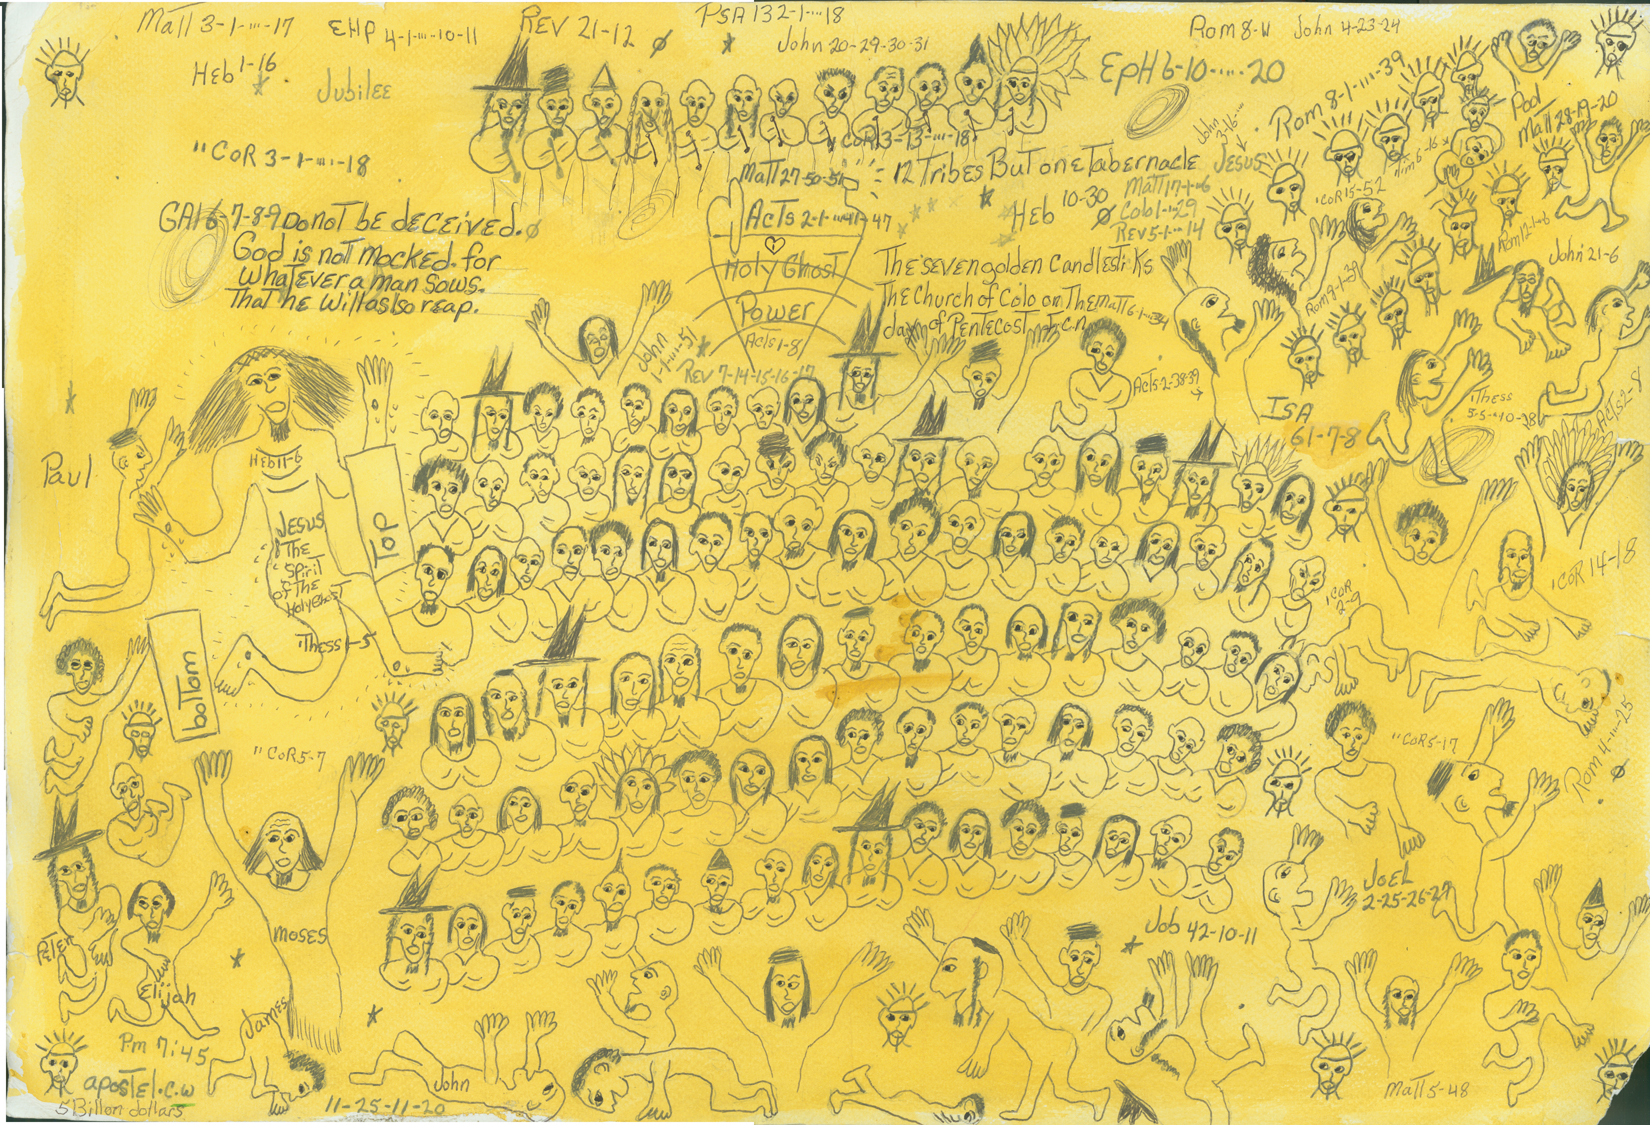 Matt 3-1-...-17
EHP 4-1-...-10-11
REV 21-12 Ø
PSA 132-1-...-18
John 20-29-30-31
Rom 8-11
John 4-23-24
Heb 1-16
Jubilee
EpH 6-10-....-20
Rom 8-1-...-39
Pool
Matt 28-19-20
John
3-16-...
JESUS
"COR 3-1-...-18
COR 3-13-...-18
Matt 27-50-51
12 Tribes But one Tabernacle
Matt 17-1-6
Heb 10-30
Ø Colo 1-29
REV 5-1-...14
'COR 15-52
Rom 12-1-6
John 21-6
Rom 8-1-39
GAl 6-7-8-9 Do not be deceived. Ø
God is not mocked. for
whatever a man sows.
That he will also reap.
Acts 2-1-...-41-47
Holy Ghost
Power
Acts 1-8
The seven golden Candlestiks
The Church of Colo on The Matt 6-1-...34
day of Pentecost J.C.n
John
1-1-...-51
REV 7-14-15-16-17
Acts-2-38-39
ISA
61-7-8
'Thess
Acts 2-8
Paul
Heb 11-6
JESUS
The
Spirit
of The
Holy Ghost
Top
'Thess 1-5
bottom
"COR 5-7
'COR 14-18
'COR
2-9
"COR 5-17
Rom 4-...-25
Ø
moses
PeTer
Elijah
James
John
JOEL
2-25-26-29
Job 42-10-11
Pm 7:45
apostel.c.w
5 Billon dollars
11-25-11-20
Matt 5-48